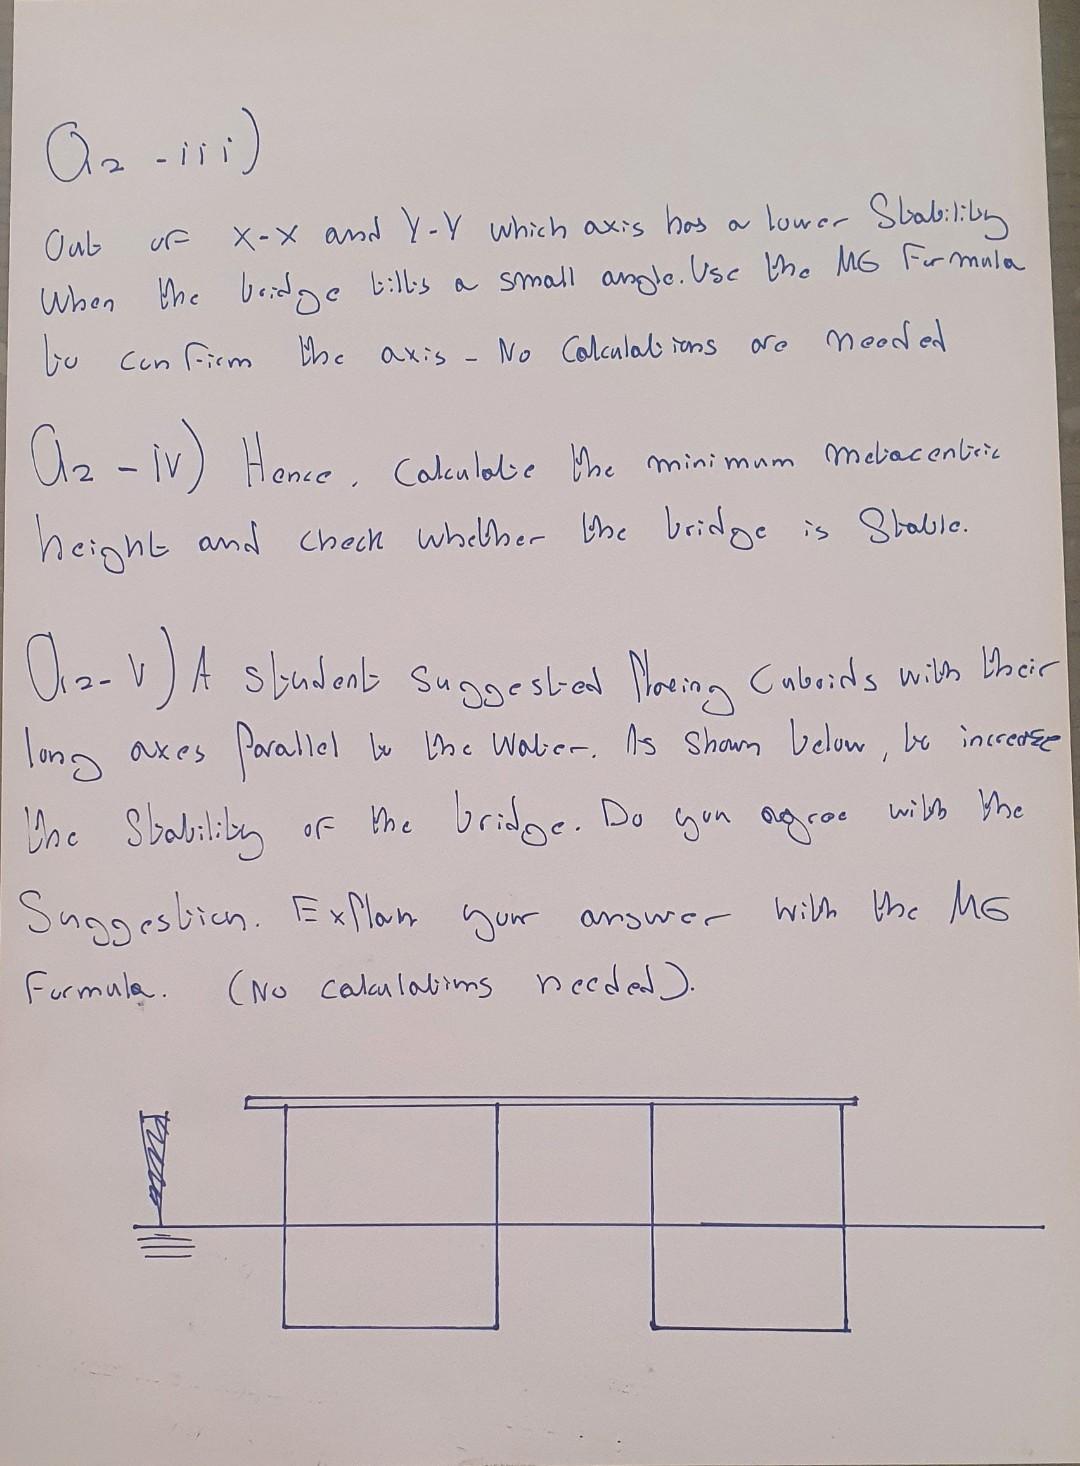 Q2 - iii)
Out of X-X and Y-Y which axis has a lower Stability
When the bridge tilts a small angle. Use the MG Formula
to confirm the axis - No Calculations are needed
Q2 - iv) Hence, Calculate the minimum metacentric
height and check whether the bridge is Stable.
Q2 - v) A student suggested Placing Cuboids with their
long axes Parallel to the Water. As shown below, to increase
the Stability of the bridge. Do you agree with the
Suggestion. Explain your answer with the MG
Formula. (No calculations needed).